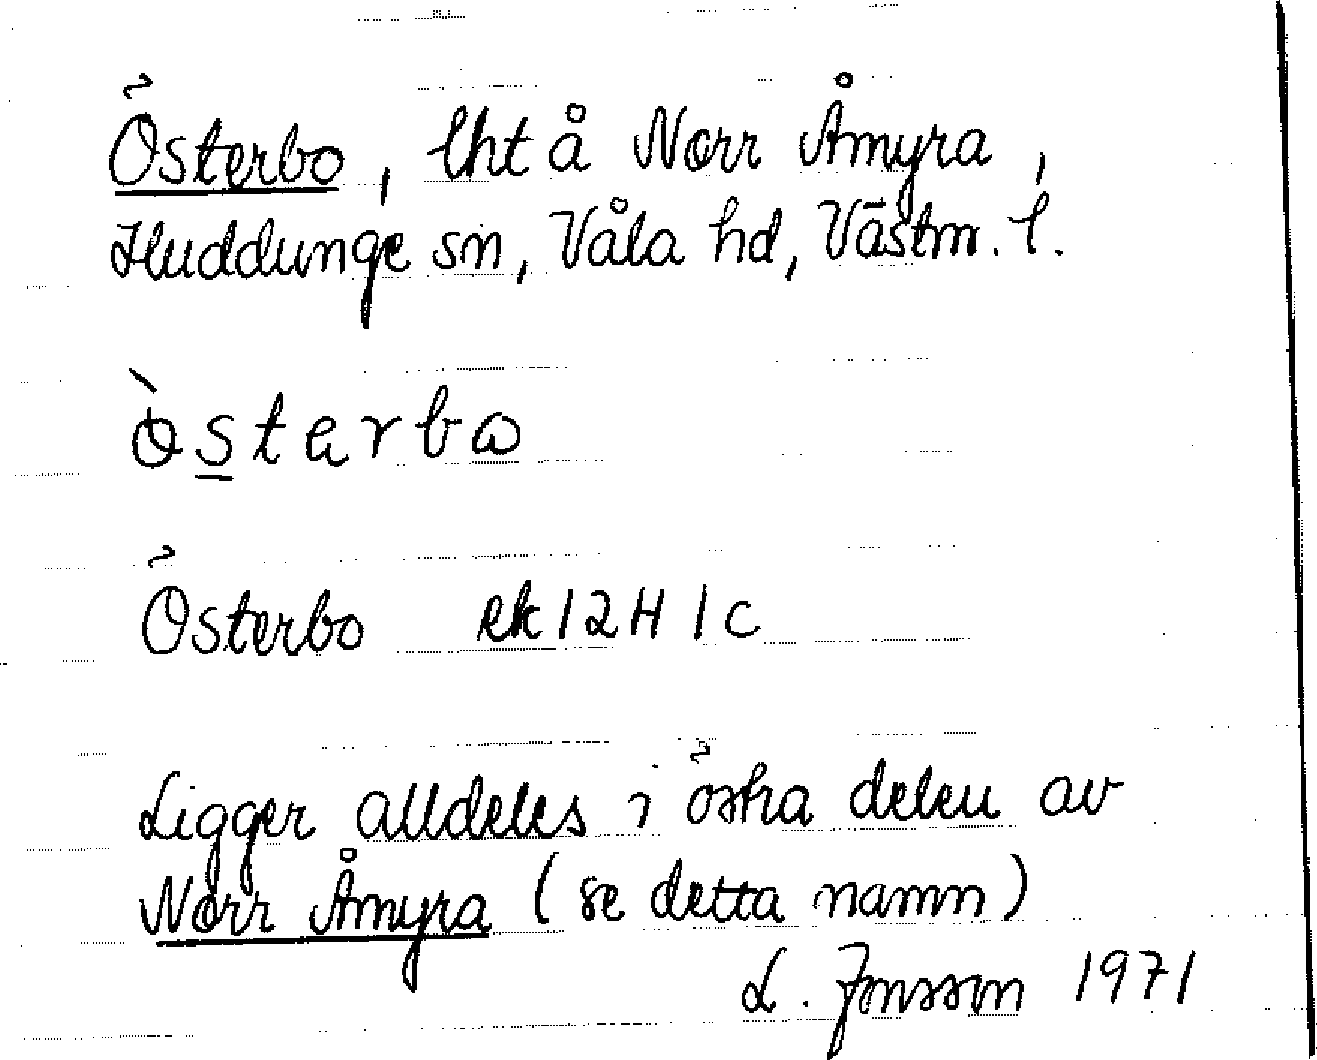 Österbo, lht å Norr Åmyra,
Huddunge sn, Våla hd, Västm. l.
ö̀sterbo
Österbo ek 12H 1c
Ligger alldeles i östra delen av
Norr Åmyra (se detta namn)
L. Jonsson 1971